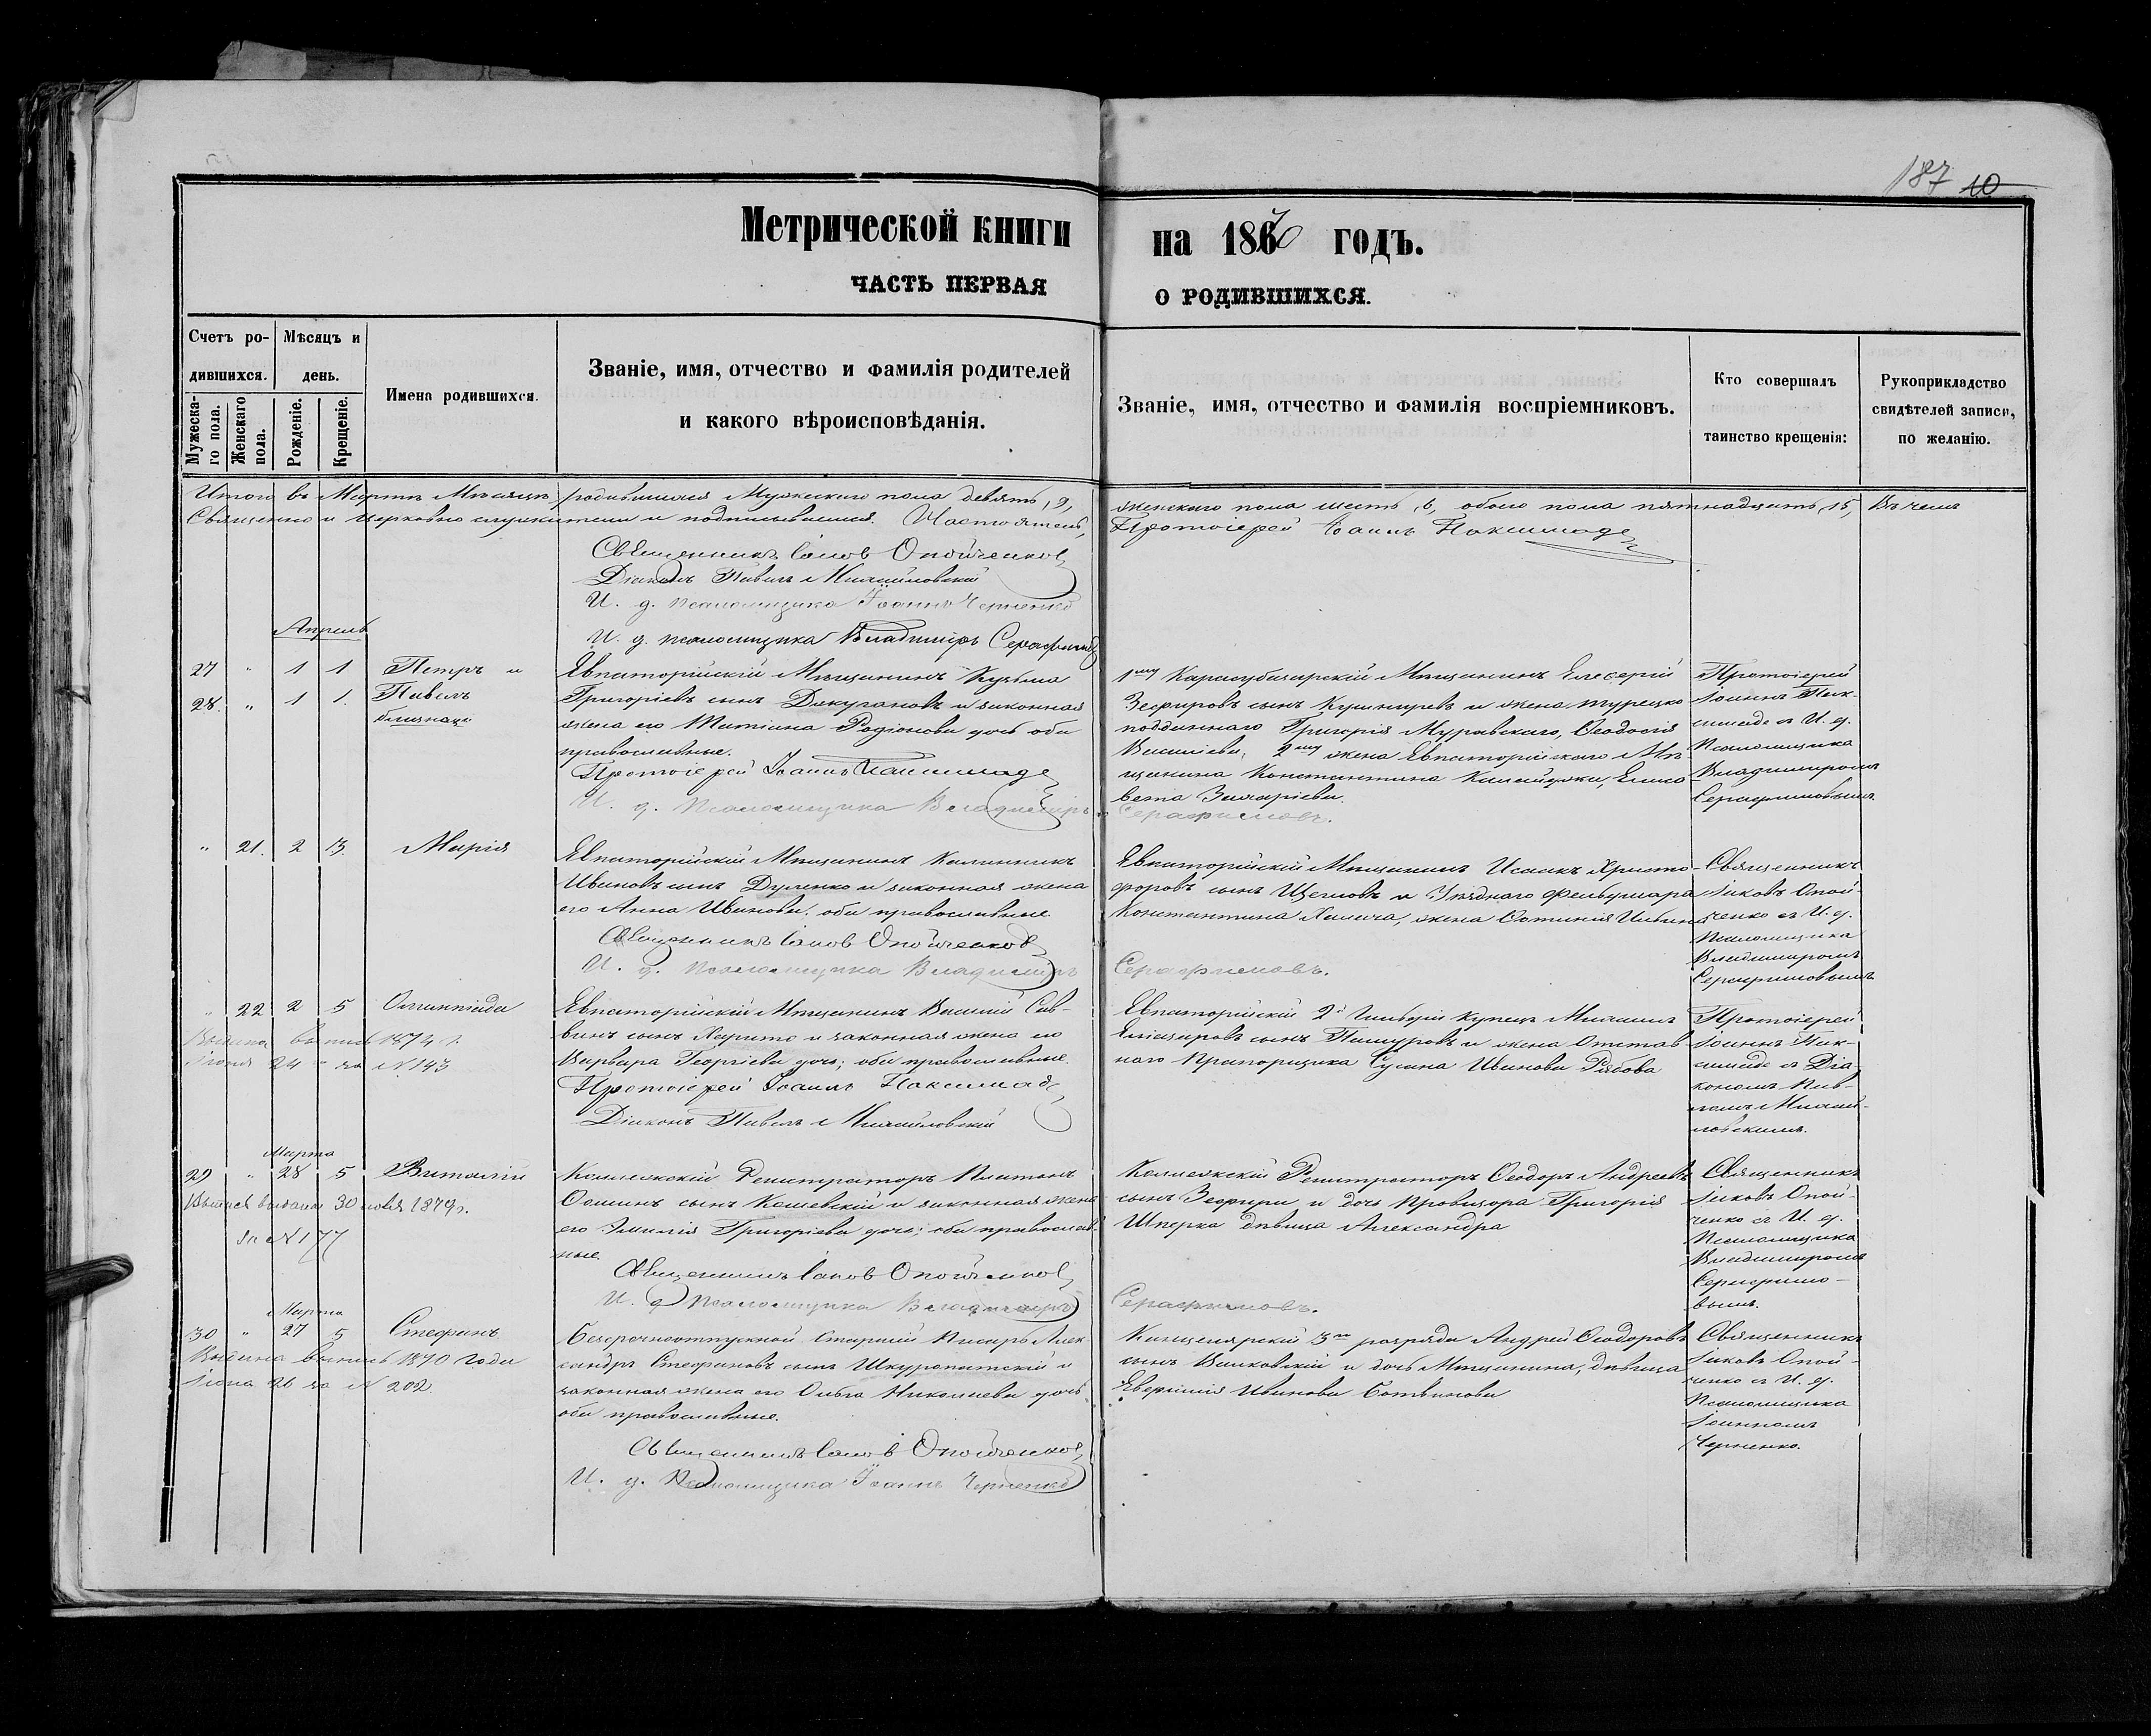 187 10
Метрической книги на 1870 годъ.
ЧАСТЬ ПЕРВАЯ О РОДИВШИХСЯ.
Счетъ родившихся.
Мужескаго пола.
Женскаго пола.
Мѣсяцъ и день.
Рожденіе.
Крещеніе.
Имена родившихся.
Званіе, имя, отчество и фамилія родителей
и какого вѣроисповѣданія.
Званіе, имя, отчество и фамилія воспріемниковъ.
Кто совершалъ
таинство крещенія:
Рукоприкладство
свидѣтелей записи,
по желанію.
Итого въ Мартѣ Мѣсяцѣ родившихся Мужескаго пола девять, 9, женскаго пола шесть, 6, обоего пола пятнадцать, 15, Въ чемъ
Священно и церковно служители и подписываемся. Настоятель, Протоіерей Іоаннъ
Священникъ Іаковъ
Діаконъ Павелъ Михайловскій
И. д. псаломщика Іоаннъ Черненко
И. д. псаломщика Владиміръ Серафимовъ
Апрель
27 " 1 1 Петръ и
28. " 1 1. Павелъ
близнецы
Евпаторійскій Мѣщанинъ Кузьма
Григоріевъ сынъ и законная
жена его Татіана Родіонова дочь оба
православные.
Протоіерей Іоаннъ
И. д. Псаломщика Владиміръ Серафимовъ.
1му Карасубазарскій Мѣщанинъ Елевферій
Зефировъ сынъ и жена турецко
подданнаго Григорія Муравскаго, Ѳеодосія
Василіева. 2му жена Евпаторійскаго Мѣ-
щанина Константина Елиса
вета Захаріева.
Протоіерей
Іоаннъ
съ И. д.
Псаломщика
Владиміромъ
Серафимовымъ.
" 21. 2 13. Марія
Евпаторійскій Мѣщанинъ Калинникъ
Ивановъ сынъ и законная жена
его Анна Иванова, оба православные
Священникъ Іаковъ
И. д. Псаломщика Владиміръ Серафимовъ.
Евпаторійскій Мѣщанинъ Исаакъ Христо-
форовъ сынъ Щегловъ и Уѣзднаго Фельдшера
Константина жена Фотинія
Священникъ
Іаковъ
съ И. д.
Псаломщика
Владиміромъ
Серафимовымъ
" 22 2 5 Олимпіада
Выдана выпись 1874 г.
Іюня 24 за № 143
Евпаторійскій Мѣщанинъ Василій Сав-
винъ сынъ Харито и законная жена его
Варвара Георгіева дочь; оба православные.
Протоіерей Іоаннъ
Діаконъ Павелъ Михайловскій
Евпаторійскій 2й Гильдіи Купецъ Михаилъ
сынъ Пашуровъ и жена Отстав-
наго Прапорщика Сусана Иванова Рябова
Протоіерей
Іоаннъ
съ Діа
кономъ Пав-
ломъ Михай-
ловскимъ.
Марта
29 " 28 5 Виталій
Выпись выдана 30 1879 г.
за № 177
Коллежскій Регистраторъ Платонъ
сынъ и законная жена
его Эмилія Григоріева дочь; оба православ-
ные.
Священникъ Іаковъ
И. д. Псаломщика Владиміръ Серафимовъ.
Коллежскій Регистраторъ Ѳеодоръ Андреевъ
сынъ Зефири и дочь Провизора Григорія
Шперка дѣвица Александра
Священникъ
Іаковъ
съ И. д.
Псаломщика
Владиміромъ
Серафимо-
вымъ.
Марта
30 " 27 5 Стефанъ
Выдана выпись 1890 года
Іюня 26 за № 202.
Безсрочноотпускной Старшій Писарь Алек
сандръ Стефановъ сынъ Шкуропатскій и
законная жена его Ольга Николаева дочь
оба православные.
Священникъ Іаковъ
И. д. Псаломщика Іоаннъ Черненко
Канцелярскій 3го разряда Андрей Ѳеодоровъ
сынъ и дочь Мѣщанина, дѣвица
Евфимія Иванова Ботвинова
Священникъ
Іаковъ
съ И. д.
Псаломщика
Іоанномъ
Черненко.